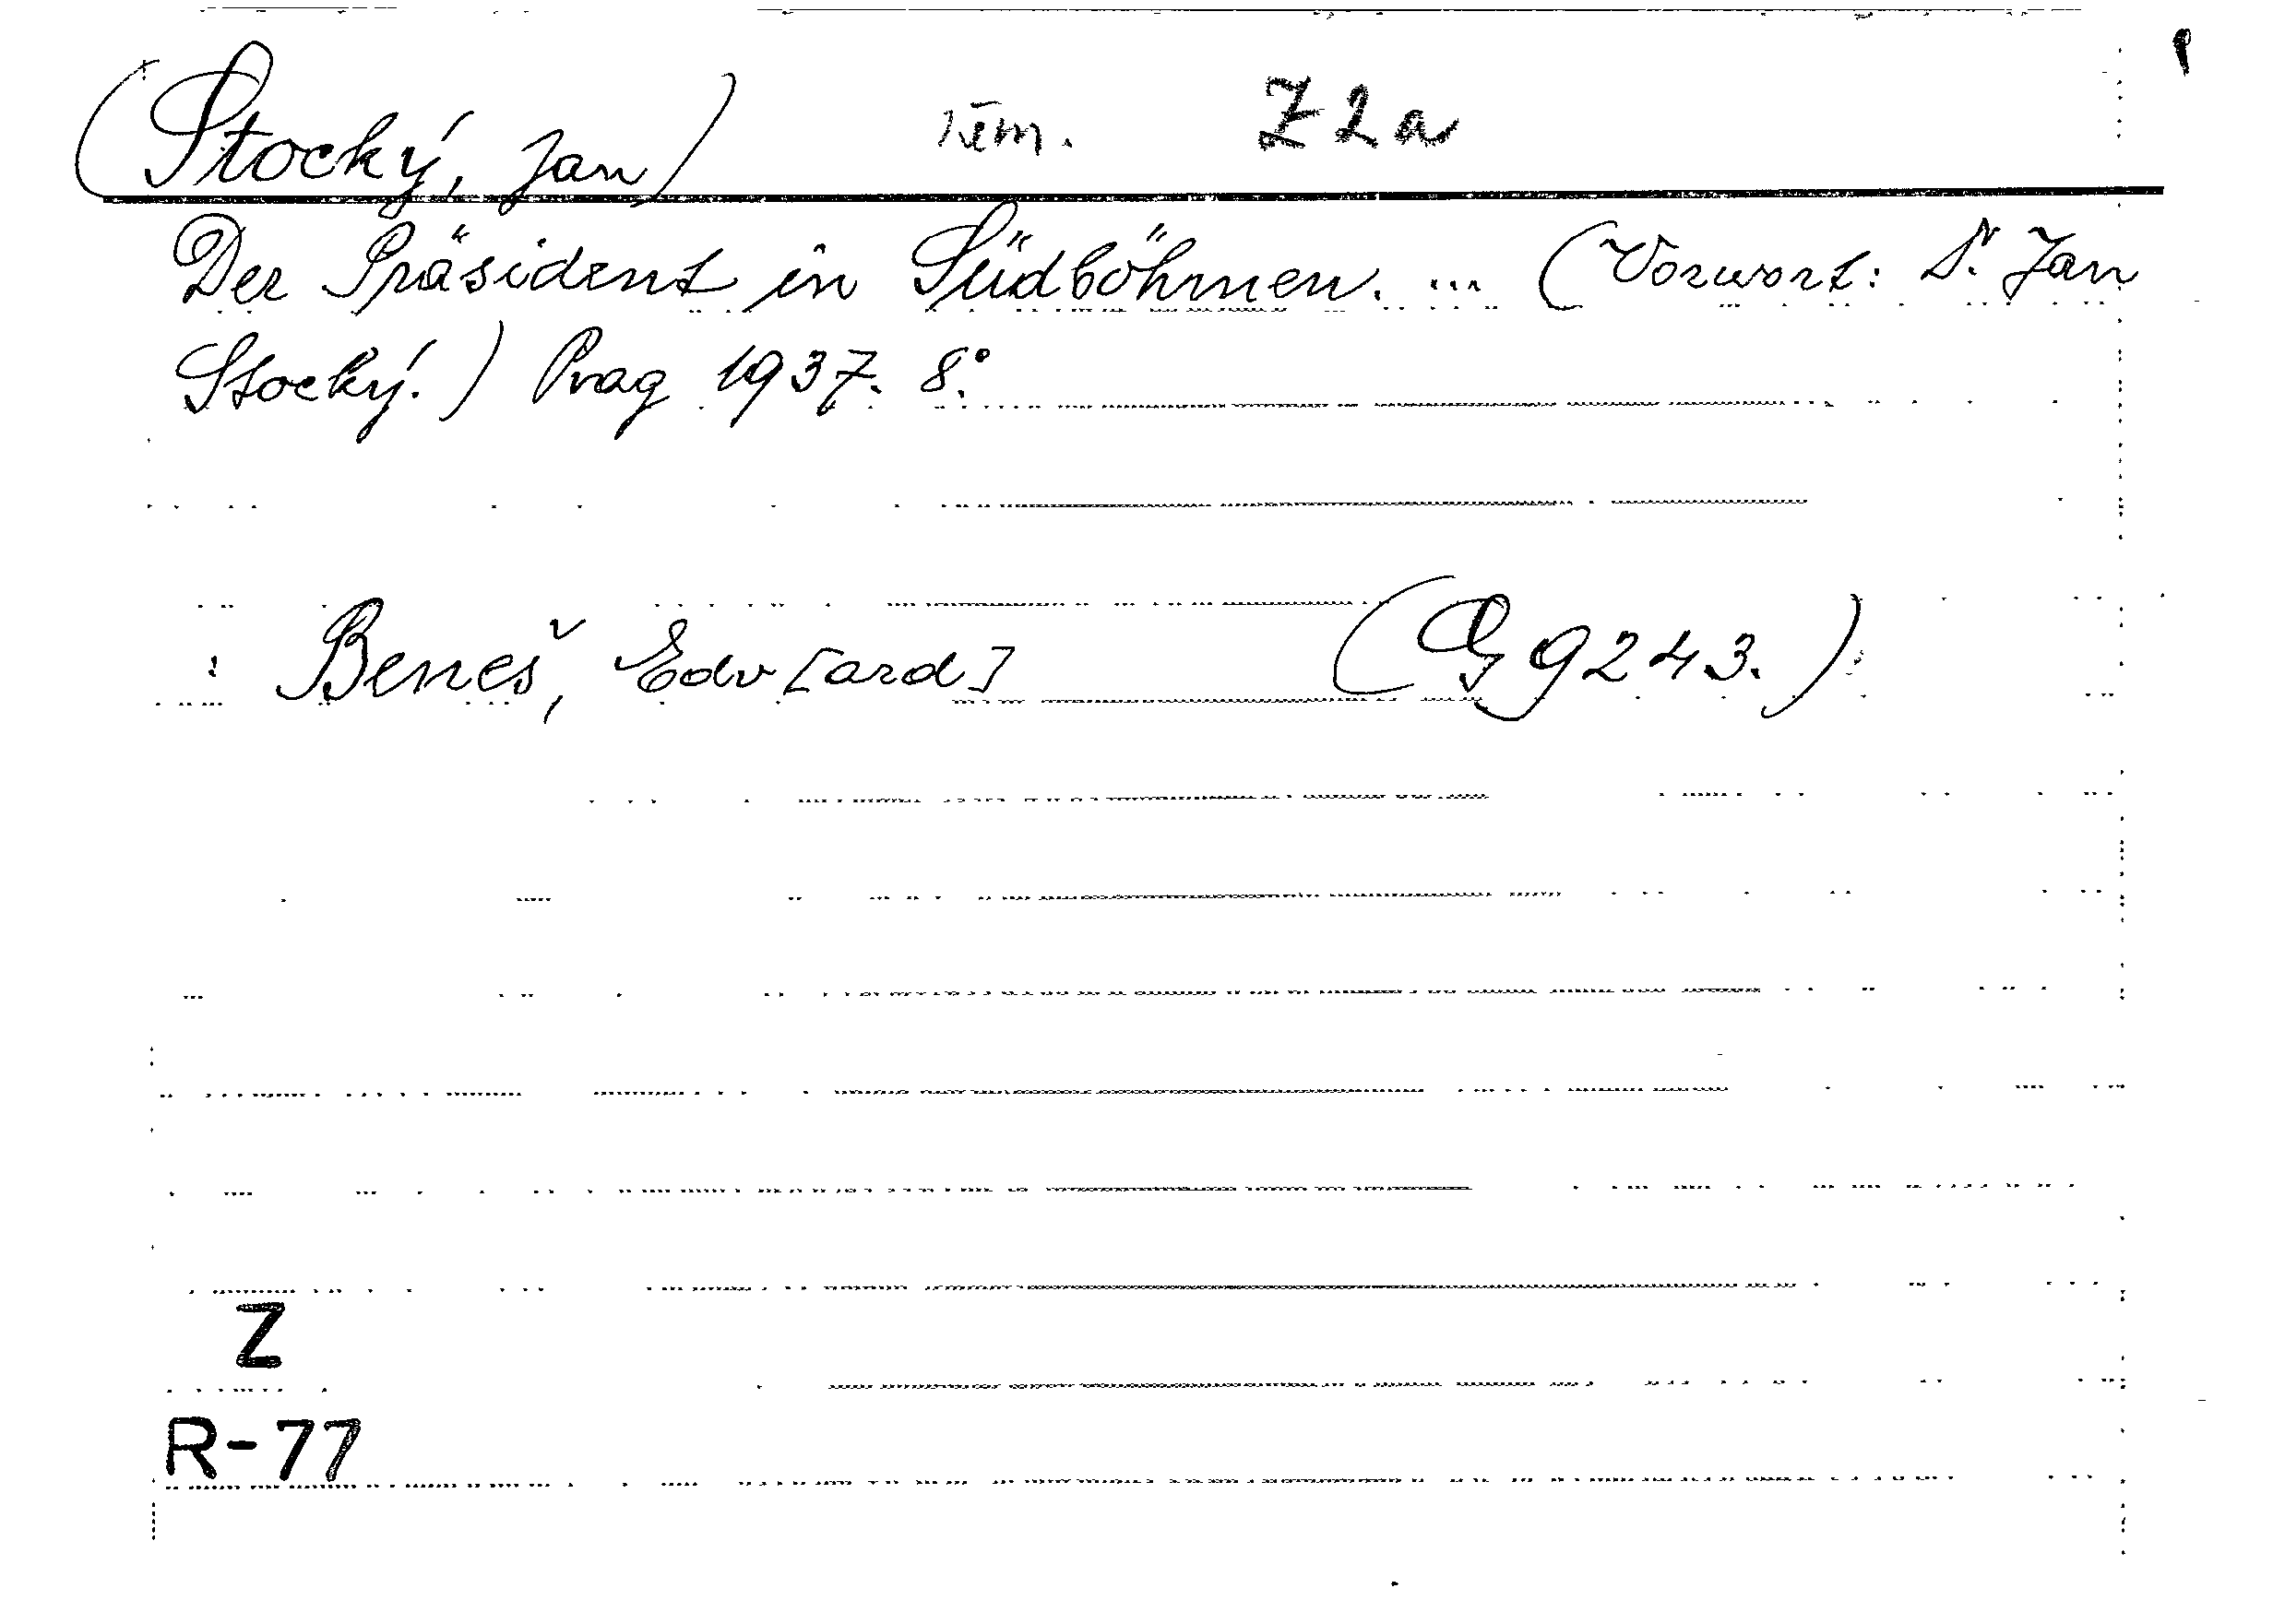 (Stocký, Jan) něm. Z 2 a
Der Präsident in Südböhmen. ... (Vorwort: Dr. Jan
Stocký.) Prag 1937. 8°.
: Beneš, Edv[ard] (G 9243.)
Z
R-77